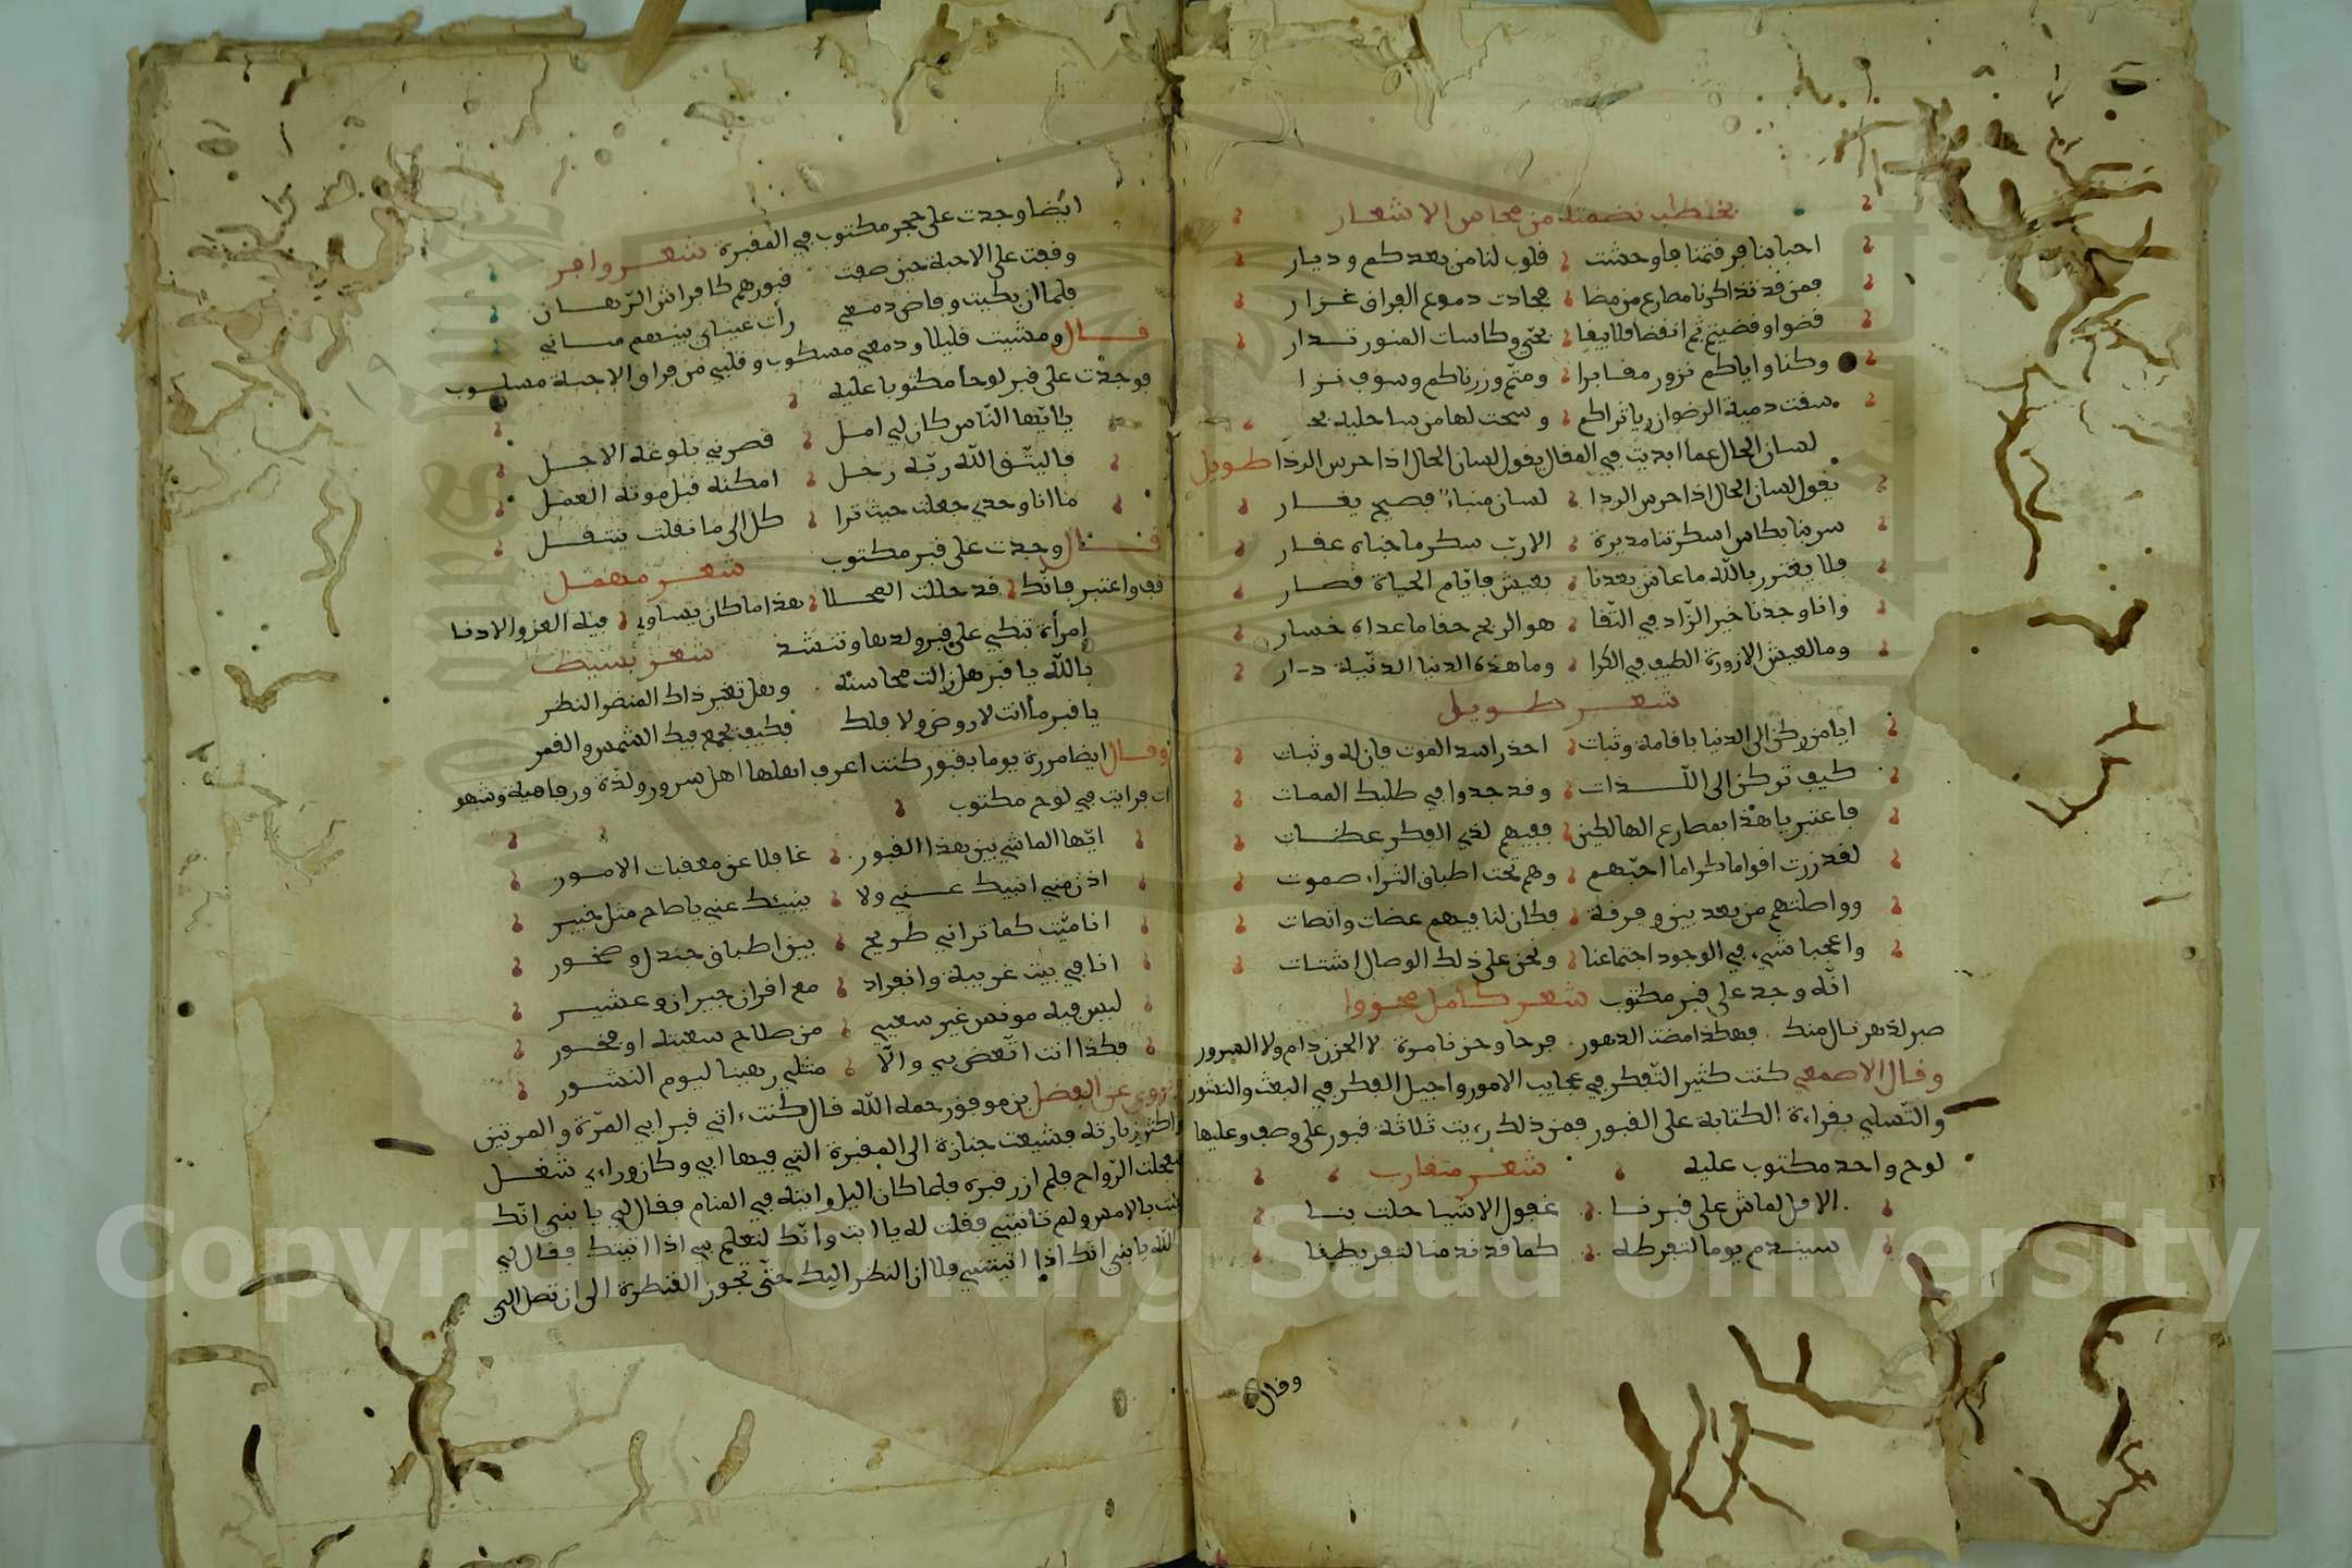 احبابنا فرقتمنا فاوحشت قلوب لنا من بعدكم وديار
فمن قد تذاكرنا مصارع من مضا فجادت دموع العراق غزار
قضوا وقضيتم ثم انقضا فلا يقا بحتي وكاسات المنور تدار
وكنا واياكم نزور مقابرا ومتم وزرناكم وسوف نزا
سقت دمية الرضوان ياتراكم وسحت لها من ساحليه بحـ
لسان الحال عما ابديت في المقال يقول لسان الحال اذا حرس الردا طويل
يقول لسان الحال اذا حرس الردا لسان منباء فصيح يغار
سرينا بكاس اسكرتنا مديرة الارب سكر ما جناه عقار
فلا يغترر بالله ما عاش بعدنا بعيش فايام الحياة قصار
وانا وجدنا خير الزاد في التقا هو الربح حقا ما عداه خسار
وما العيش الا زورة الطيف في الكرا وما هذه الدنيا الدنية دار
شعر طويل
ايا من ركن الى الدنيا باقامة وثبات احذر اسد الموت فان له وثبات
كيف تركن الى اللـذات وقد جدوا في طلبك الممات
فاعتبر يا هذا بمصارع الهالكين ففيهم لذي الفكر عظات
لقد زرت اقواما كراما احبهم وهم تحت اطباق الثراء صموت
وواصلتهم من بعد بين وفرقة فكان لنا فيهم عضات وانصات
واعجبا شيء في الوجود اجتماعنا ونحن على ذلك الوصال اشتات
انه وجد على قبر مكتوب شعر كامل مجزوا
صبر لدهر نال منك فهكذا مضت الدهور فرحا وحزنا مرة لا الحزن دام ولا السرور
وقال الاصمعي كنت كثير التفكر في عجايب الامور واجيل الفكر في البعث والنشور
والتسلي بقراءة الكتابة على القبور فمن ذلك رءيت ثلاثة قبور على وصف وعليها
لوح واحد مكتوب عليه شعر متقارب
الا قل لماش على قبرنا غفول الاشيا حلت بنا
سيندم يوما لتفرطه كما قد ندمنا لتفريطنا
وقال
ايضا وجدت على حجر مكتوب في المقبرة شعر وافر
وقفت على الاحبة حين صفت قبورهم كافراش الرهان
فلما ان بكيت وفاض دمعي رأت عيناي بينهم مكاني
قال ومشيت قليلا ودمعي مسكوب وقلبي من فراق الاحبة مسلوب
فوجدت على قبر لوحا مكتوبا عليه
يا ايها الناس كان لي امل قصرني بلوغه الاجل
فاليتق الله ربه رجل امكنه قبل موته العمل
ما انا وحدي جعلت حيث ترا كل الى ما نقلت ينتقل
قال وجدت على قبر مكتوب شعر مهمل
قف واعتبر فانك قد حللت المحلا هذا ما كان يساوي فيه العز والادنا
امرأة تبكي على قبر ولدها وتنشد شعر بسيط
بالله يا قبر هل زالت محاسنه وهل تغير ذاك المنضر النظر
يا قبر ما انت لا روض ولا فلك فكيف يجمع فيك الشمس والقمر
وقال ايضا مررة يوما بقبور كنت اعرف اهلها اهل سرور ولذة ورفاهية وشهو
ات فرايت في لوح مكتوب
ايها الماشي بين هذا القبور غافلا عن معقبات الامور
اذن مني انبيك عـني ولا ينبيك عني يا صاح مثل خبير
انا ميت كما تراني طريح بين اطباق جندل وصخور
انا في بيت غريبة وانفراد مع اقران جيران وعشير
ليس فيه مونس غير سعيي من صلاح سعيته او فجور
فكذا انت اتعض بي والا مثلي رهينا ليوم النشور
روي عن الفضل بن موفق رحمه الله قال كنت ءاتي قبر ابي المرة والمرتين
واكثر زيارته فشيعت جنازة الى المقبرة التي فيها ابي وكان وراءي شغل
فعجلت الرواح فلم ازر قبره فلما كان اليل رايته في المنام فقال لي يا بني انك
بالامس ولم تاتيني فقلت له يا ابت وانك لتعلم بي اذا اتيتك فقال لي
والله يا بني انك اذا اتيتني فلا ازال انظر اليك حتى تجوز القنطرة الى ان تصل الي